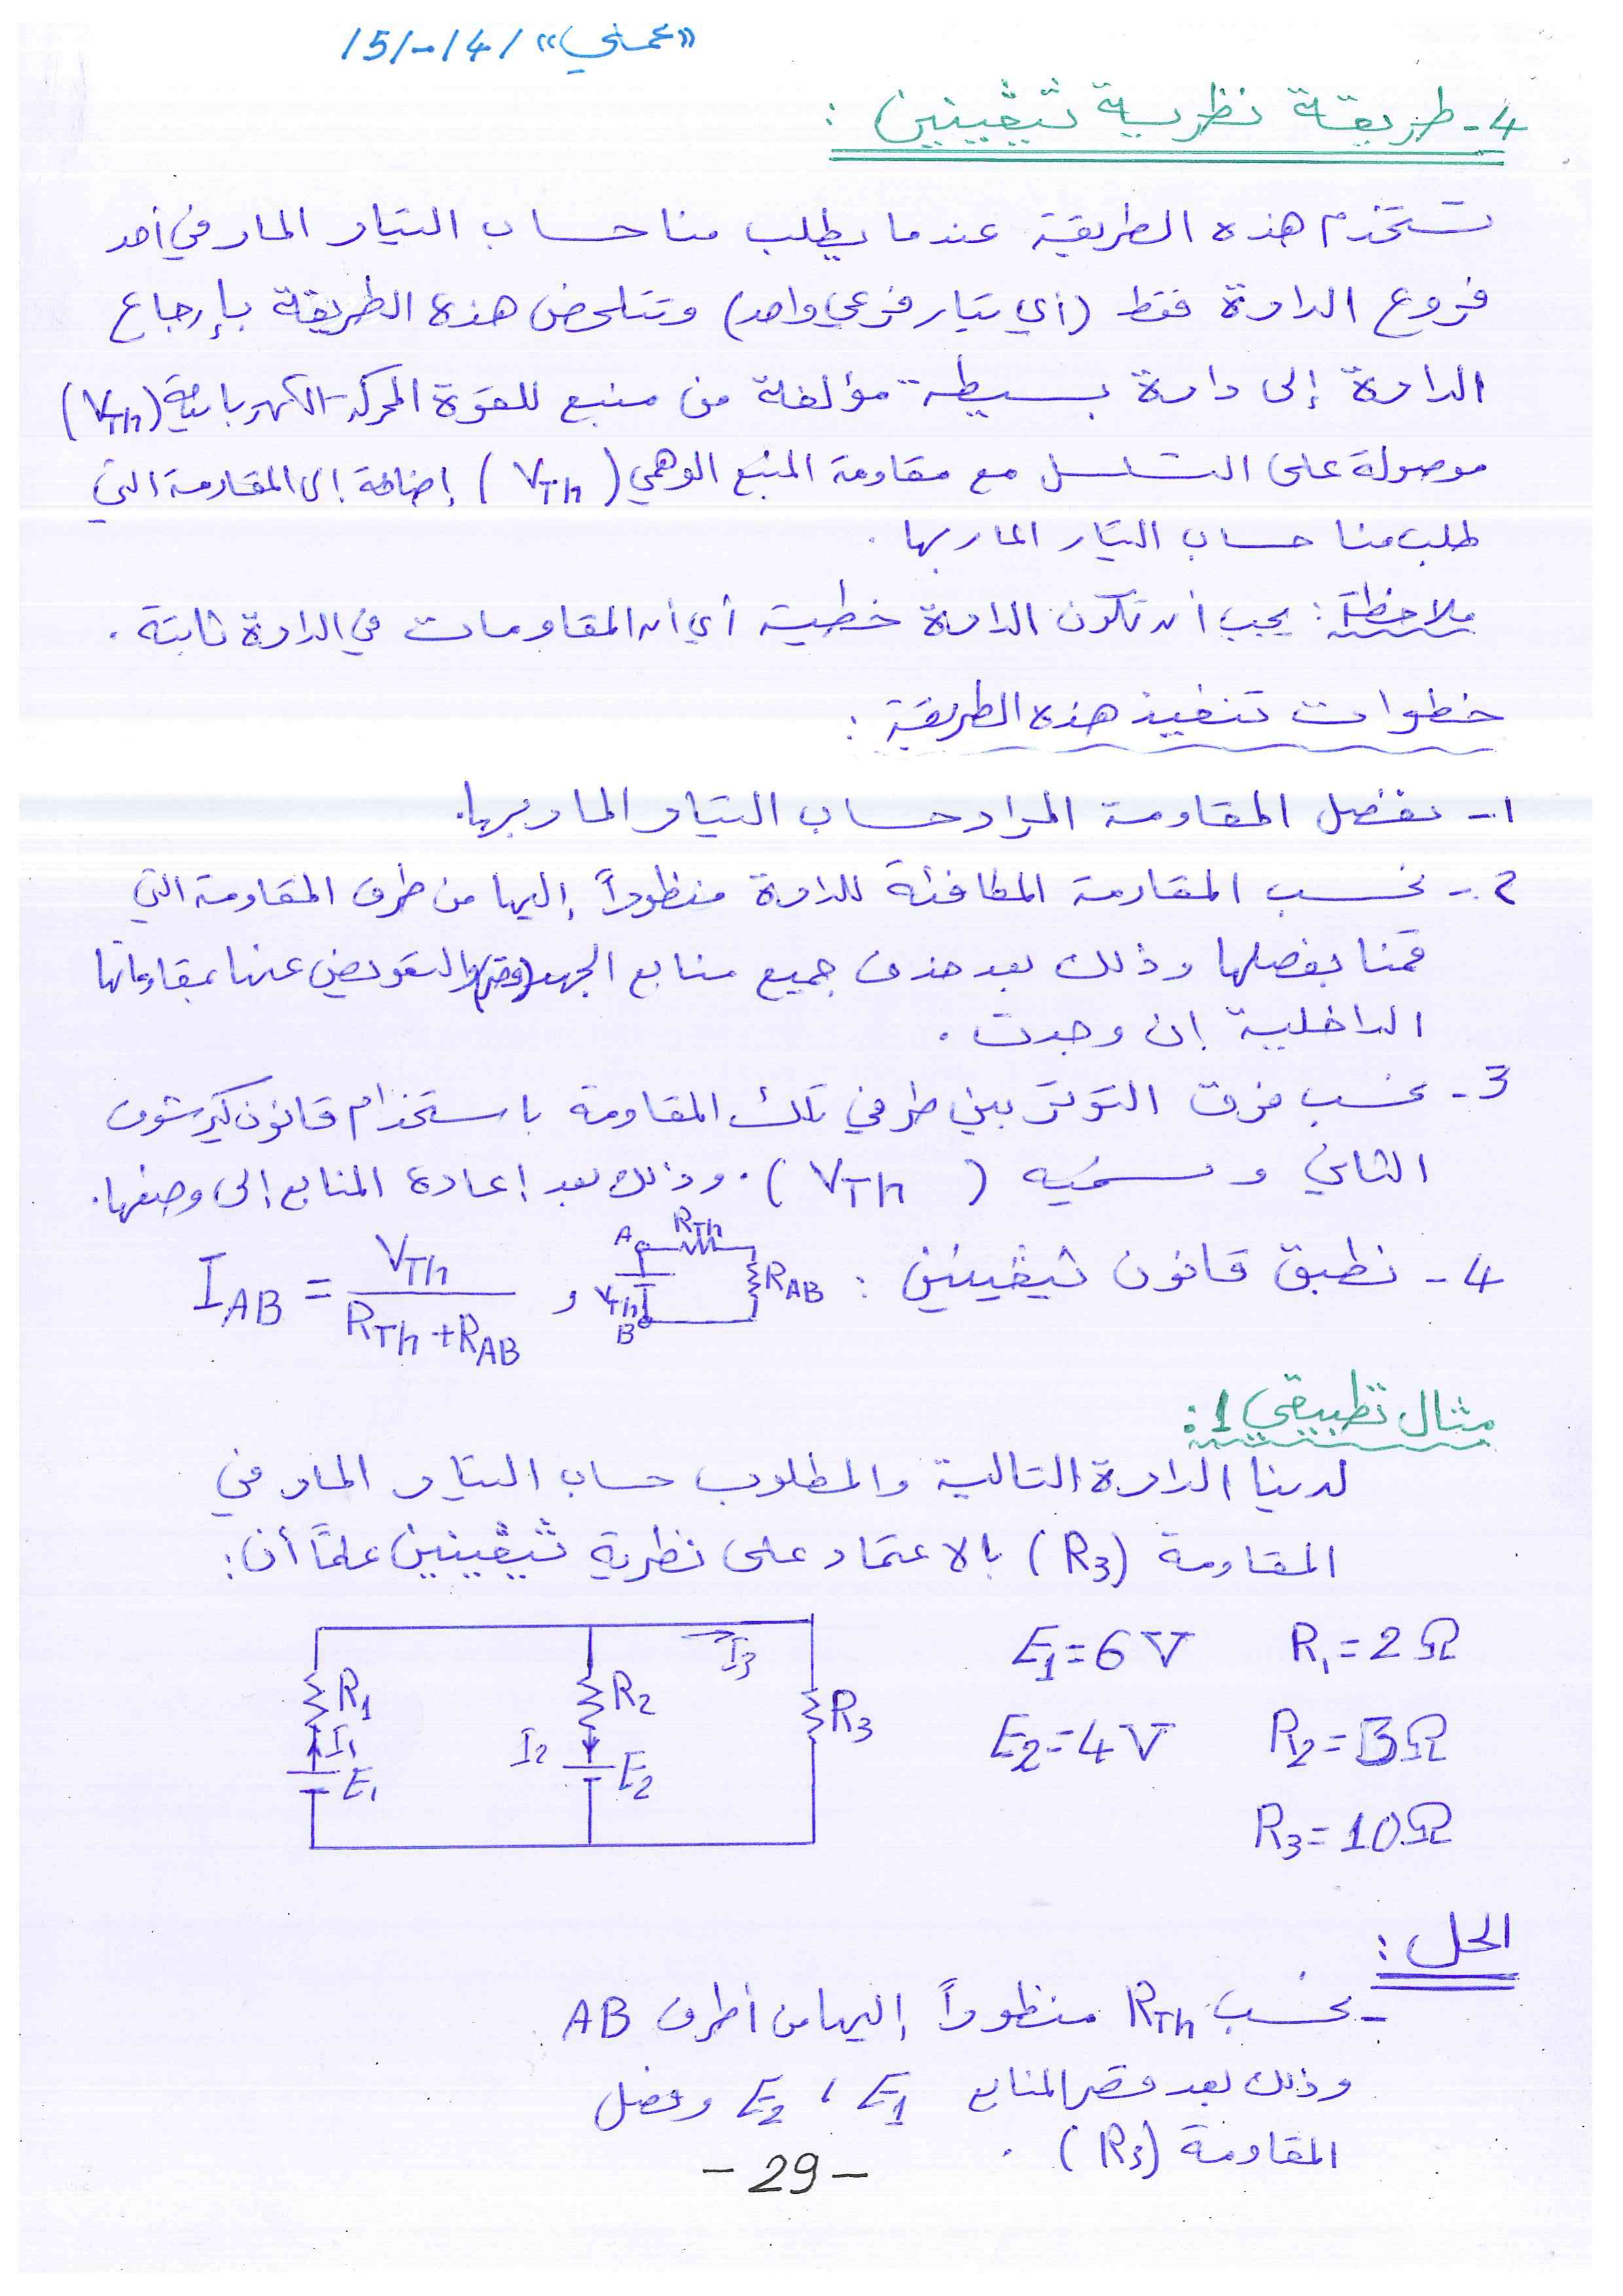 «عملي» /4/-/5/
4- طريقة نظرية ثيڤينين :
تستخدم هذه الطريقة عندما يطلب منا حساب التيار المار في أحد
فروع الدارة فقط (أي تيار فرعي واحد) وتتلخص هذه الطريقة بإرجاع
الدارة إلى دارة بسيطة مؤلفة من منبع للقوة المحركة الكهربائية (VTh)
موصولة على التسلسل مع مقاومة المنبع الوهمي (VTh) إضافة إلى المقاومة التي
طلب منا حساب التيار المار بها .
ملاحظة : يجب أن تكون الدارة خطية أي أن المقاومات في الدارة ثابتة .
خطوات تنفيذ هذه الطريقة :
1- نفصل المقاومة المراد حساب التيار المار بها.
2- نحسب المقاومة المكافئة للدارة منظوراً إليها من طرف المقاومة التي
قمنا بفصلها وذلك بعد حذف جميع منابع الجهد (وقصرها) والتعويض عنها بمقاوماتها
الداخلية إن وجدت .
3- نحسب فرق التوتر بين طرفي تلك المقاومة باستخدام قانون كيرشوف
الثاني ونسميه (VTh) . وذلك بعد إعادة المنابع إلى وضعها.
4- نطبق قانون ثيڤينين :
A RTh RAB VTh B
, IAB = VTh / RTh + RAB
مثال تطبيقي 1 :
لدينا الدارة التالية والمطلوب حساب التيار المار في
المقاومة (R3) بالاعتماد على نظرية ثيڤينين علماً أن :
E1 = 6 V R1 = 2 Ω
E2 = 4 V R2 = 3 Ω
R3 = 10 Ω
I3
R1 R2 R3
I1 I2
E1 E2
الحل :
- نحسب RTh منظوراً إليها من أطراف AB
وذلك بعد قصر المنابع E1 ، E2 وفصل
المقاومة (R3) .
- 29 -